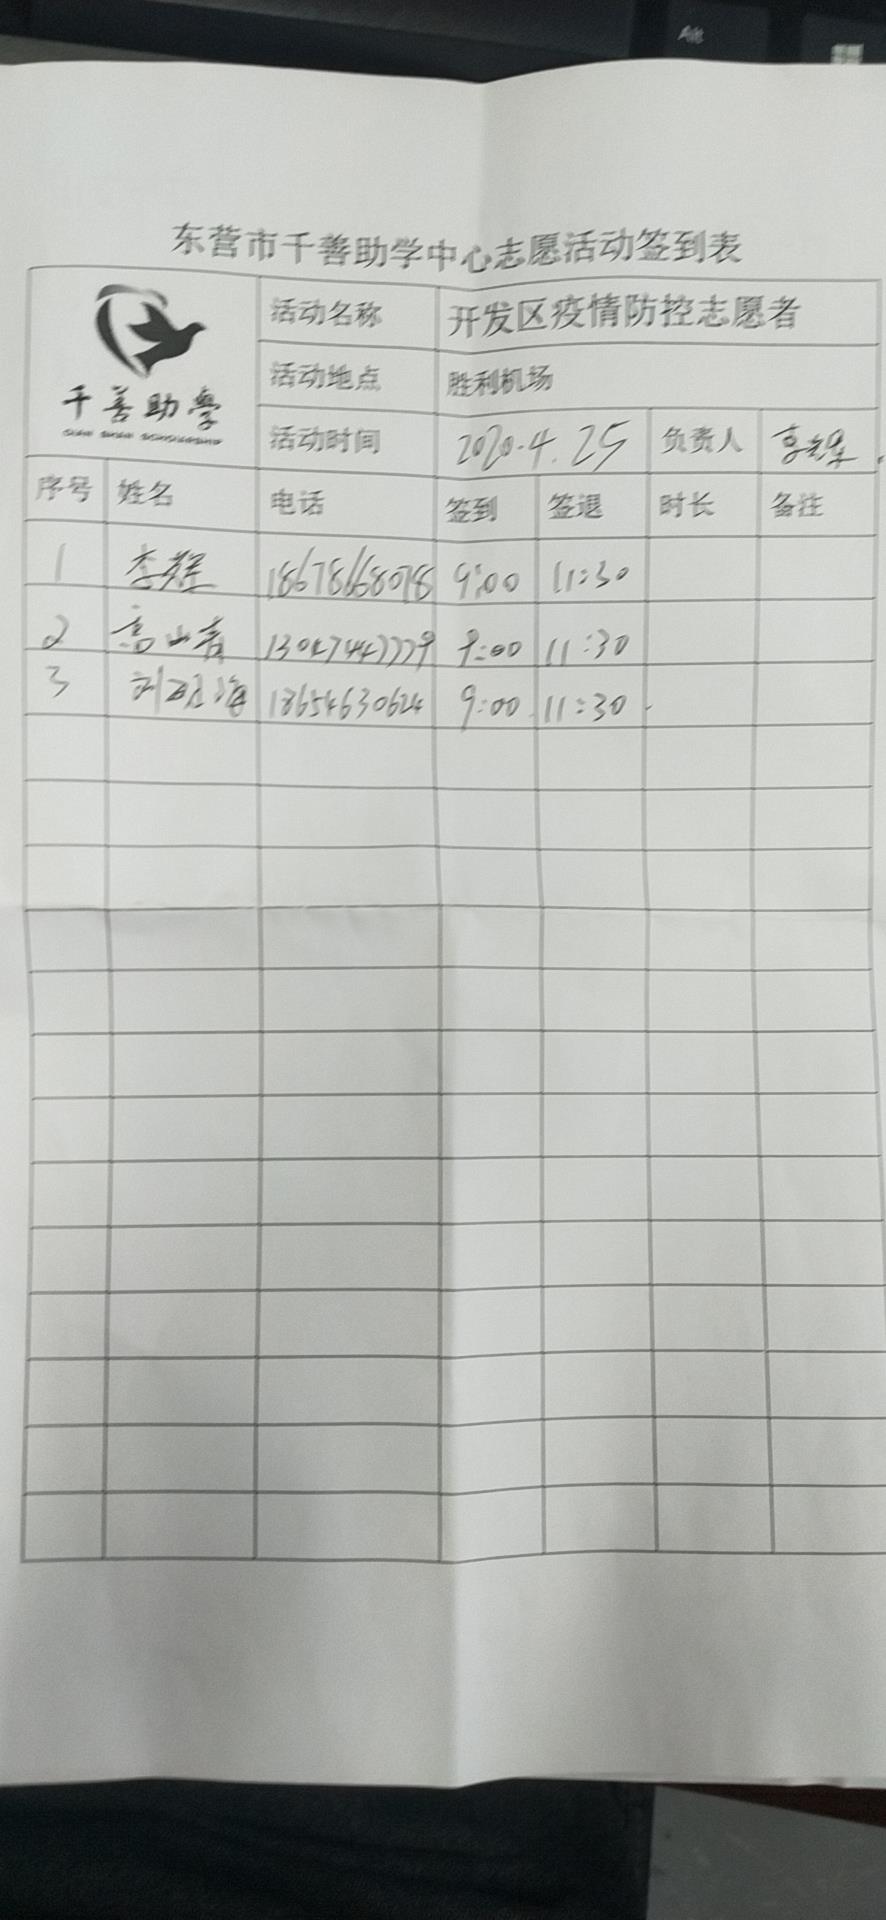 Alt
东营市千善助学中心志愿活动签到表
千善助學
活动名称 开发区疫情防控志愿者
活动地点 胜利机场
活动时间 2020.4.25 负责人
序号 姓名 电话 签到 签退 时长 备注
1 18678668078 9:00 11:30
2 9:00 11:30
3 18654630624 9:00 11:30